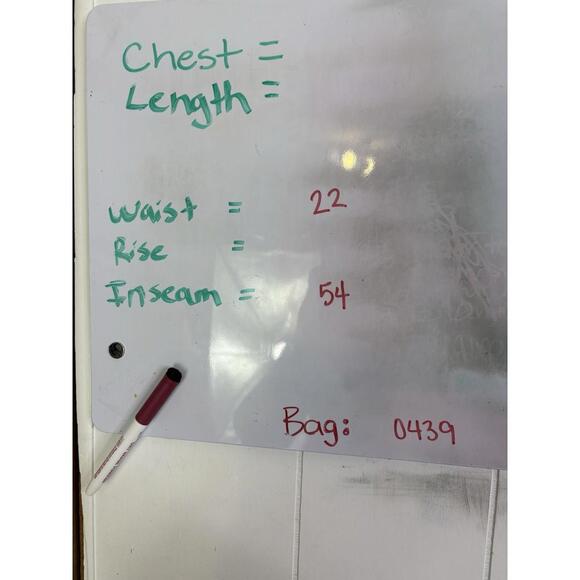 Chest =
Length =
Waist = 22
Rise =
Inseam = 54
Bag: 0439